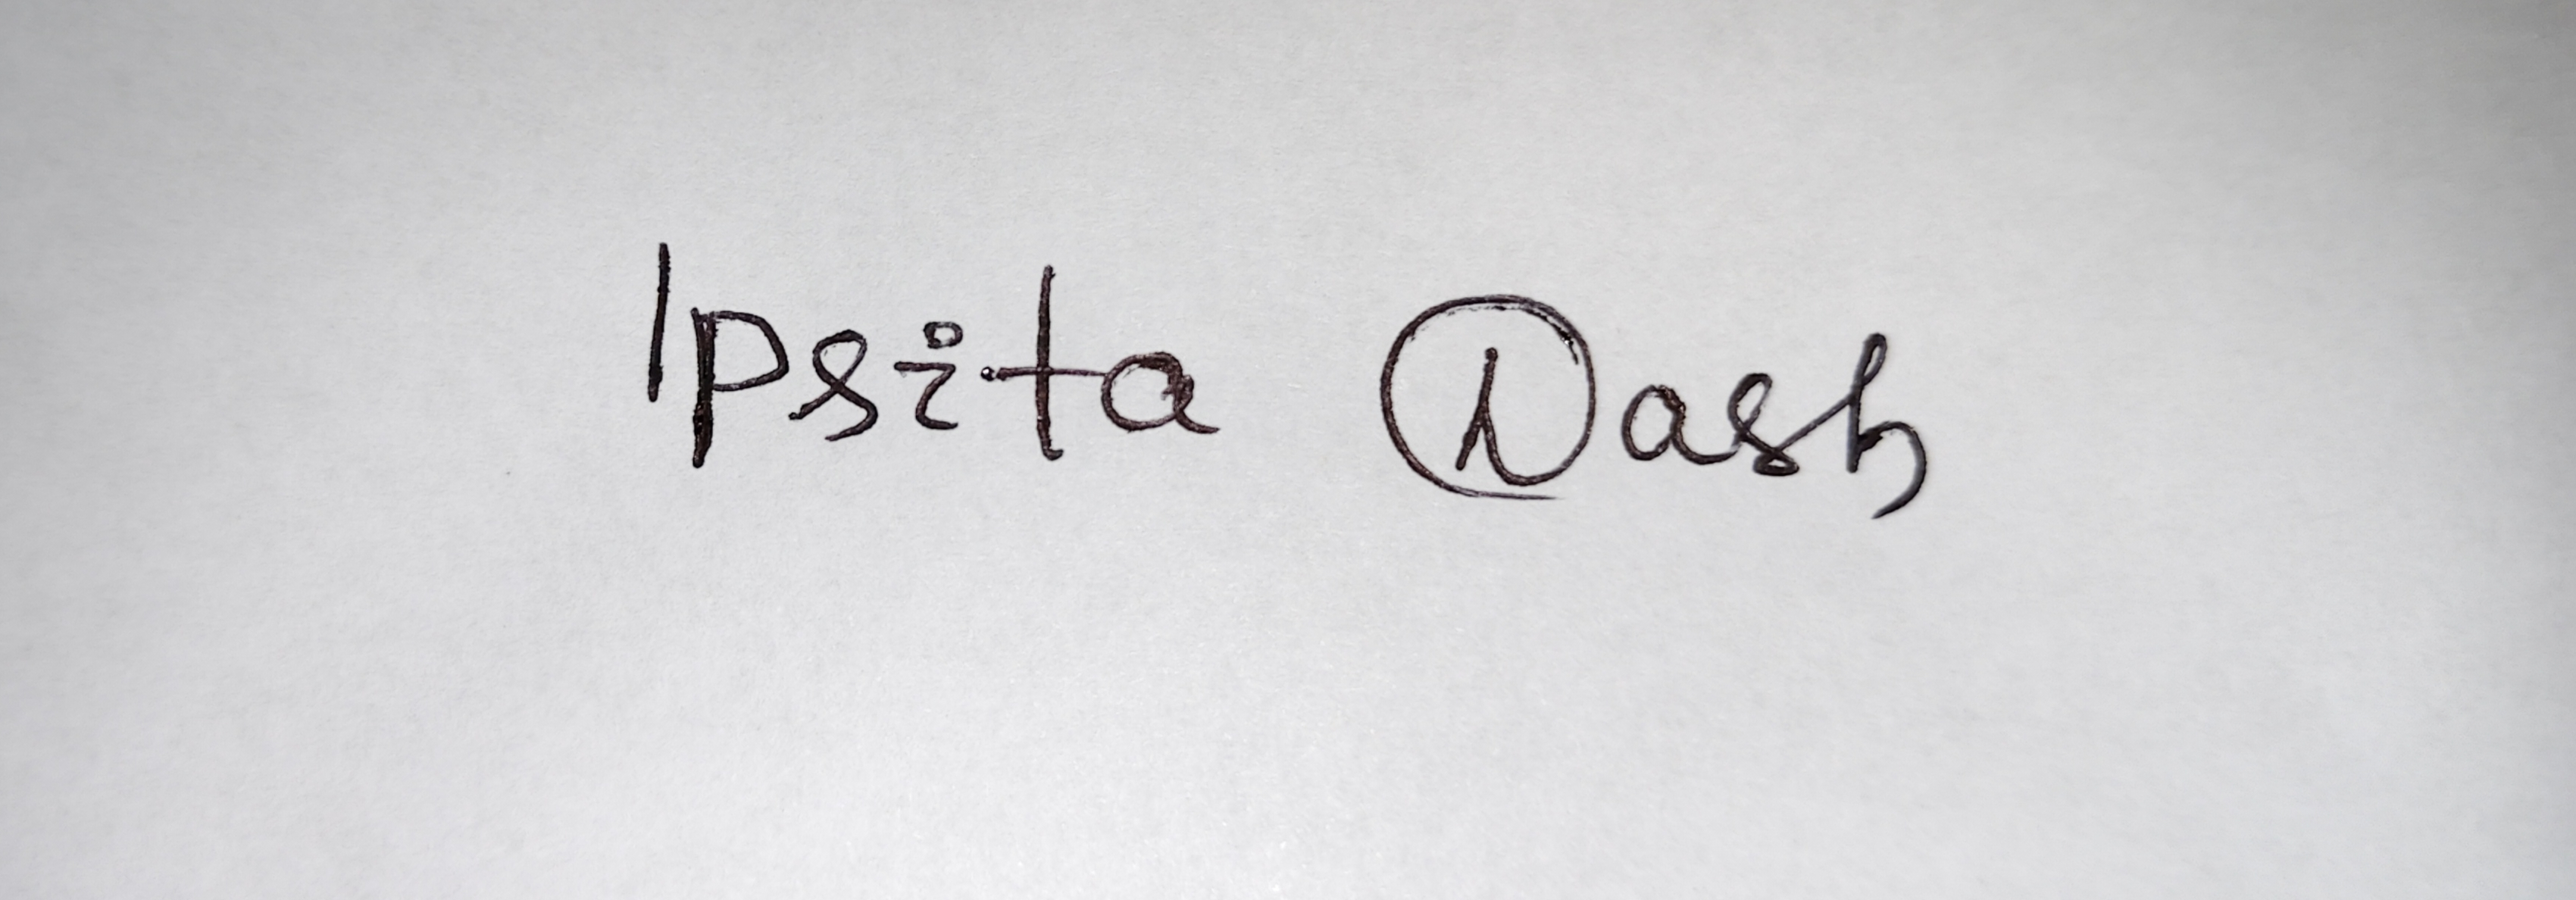 Ipsita Dash